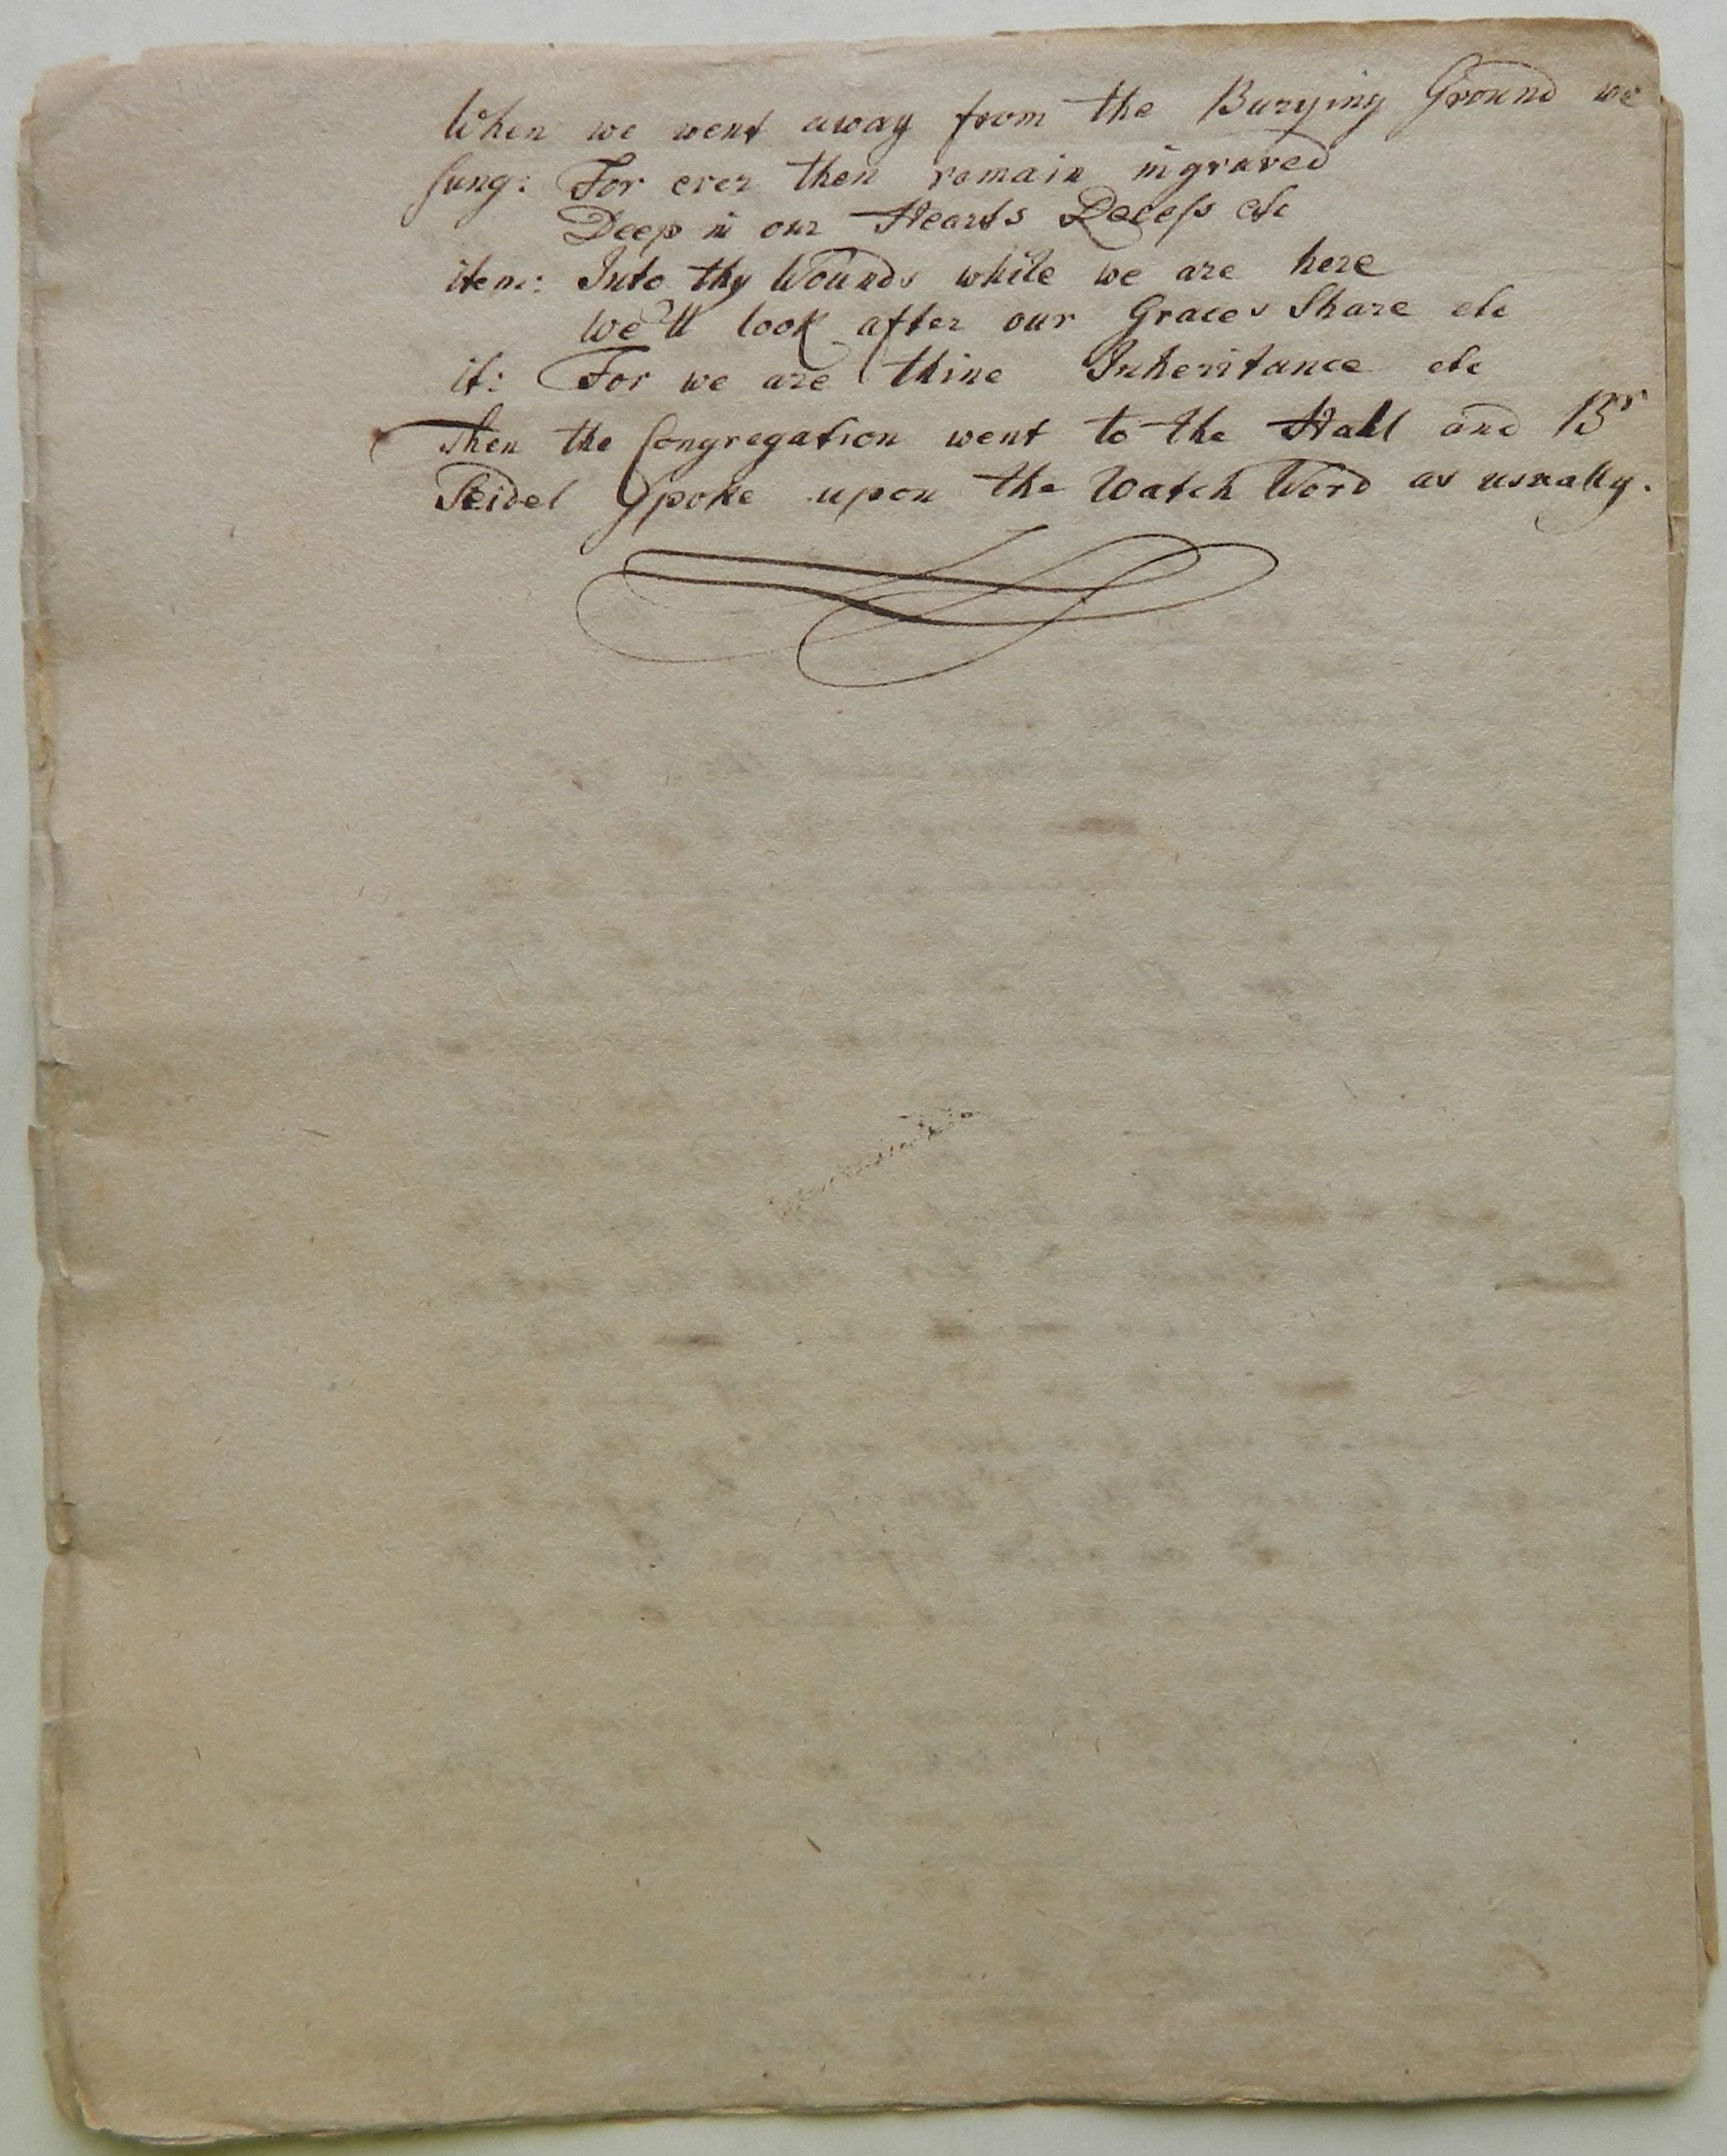 When we went away from the Burying Ground we
sung: For ever then remain ingraved
Deep in our Hearts Recess etc
item: Into thy Wounds while we are here
We'll look after our Graces Share etc
it: For we are thine Inheritance etc
Then the Congregation went to the Hall and Br
Seidel Spoke upon the Watch Word as usually.